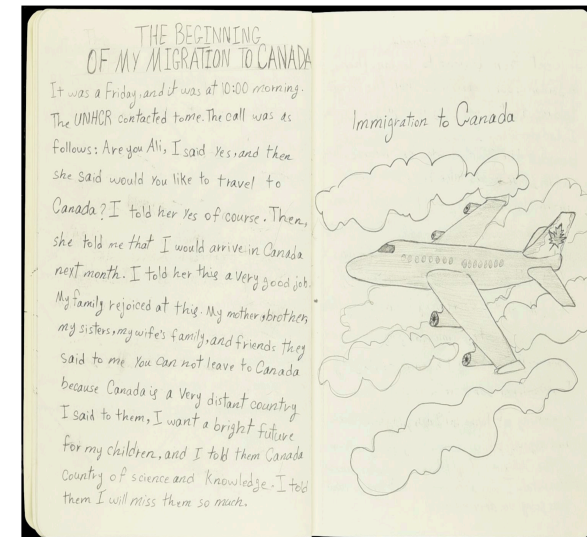 THE BEGINNING
OF MY MIGRATION TO CANADA
It was a Friday, and it was at 10:00 morning.
The UNHCR contacted to me. The call was as
follows: Are you Ali, I said Yes, and then
she said would You like to travel to
Canada? I told her Yes of course. Then,
she told me that I would arrive in Canada
next month. I told her this a very good job.
My family rejoiced at this. My mother, brother,
my sisters, my wife's family, and friends they
said to me You can not leave to Canada
because Canada is a very distant country
I said to them, I want a bright future
for my children, and I told them Canada
Country of science and Knowledge. I told
them I will miss them so much.
Immigration to Canada